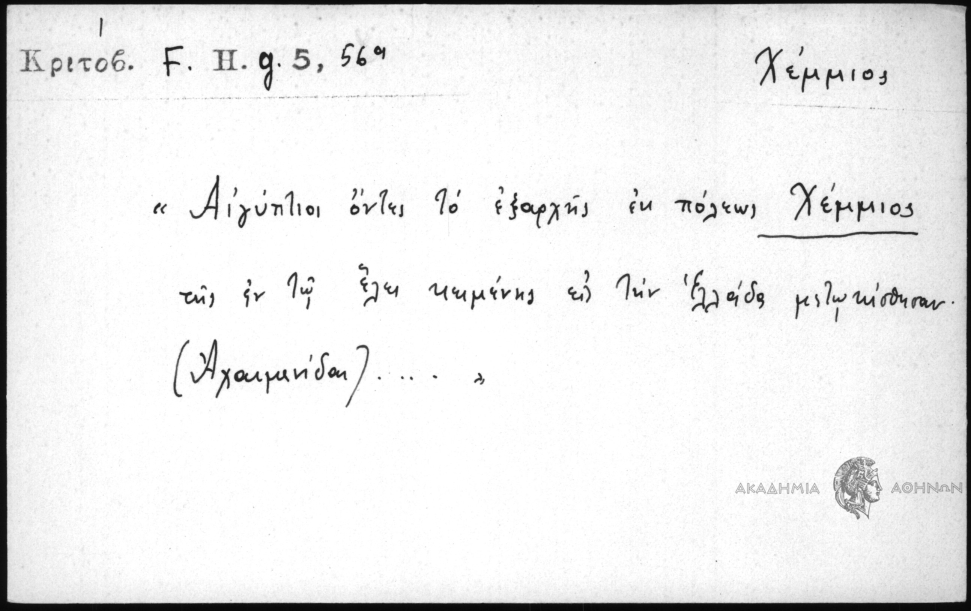 Κριτοβ. F. H. g. 5, 56ᵅ
Χέμμιος
« Αἰγύπτιοι ὄντες τὸ ἐξαρχῆς ἐκ πόλεως Χέμμιος
τῆς ἐν τῷ ἕλει κειμένης εἰς τὴν Ἑλλάδα μετῳκίσθησαν.
(Ἀχαιμενίδαι) .... »
ΑΚΑΔΗΜΙΑ ΑΘΗΝΩΝ